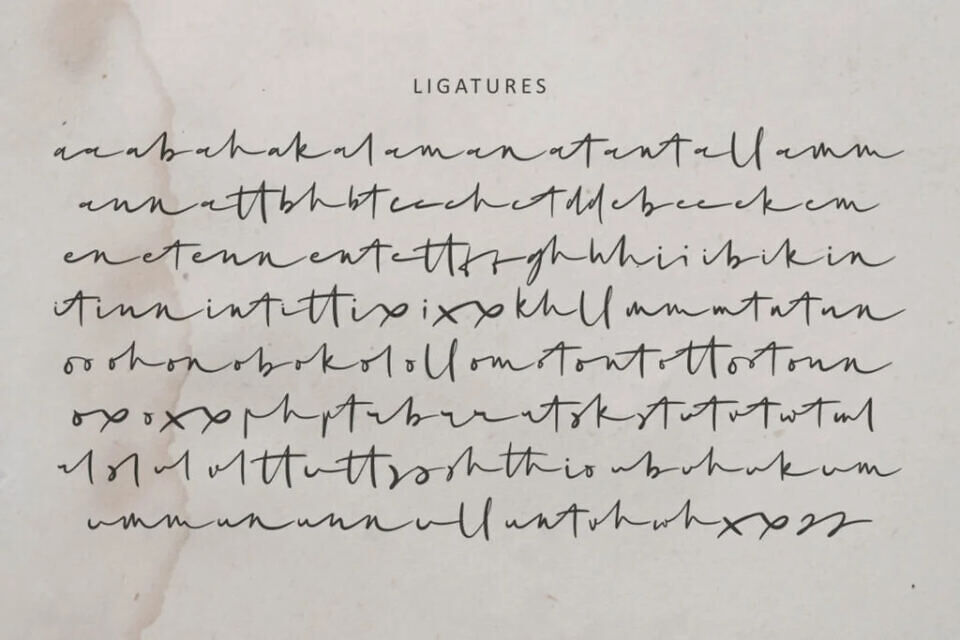 LIGATURES
aa ab ah ak al am an at ant all amm
ann att bh bt cc ch ct dd eb ee ek em
en et enn ent ett ff gh hh ii ib ik in
it inn int itt ix ixx kh ll mm mt nt nn
oo oh on ob ok ol oll om ot ont ott ost onn
ox oxx ph pt rb rr rt sk st ut vt wt wl
rl sl ul vl tt utt ss sh tth io ub uh uk um
umm un unn ull unt vh wh xx zz